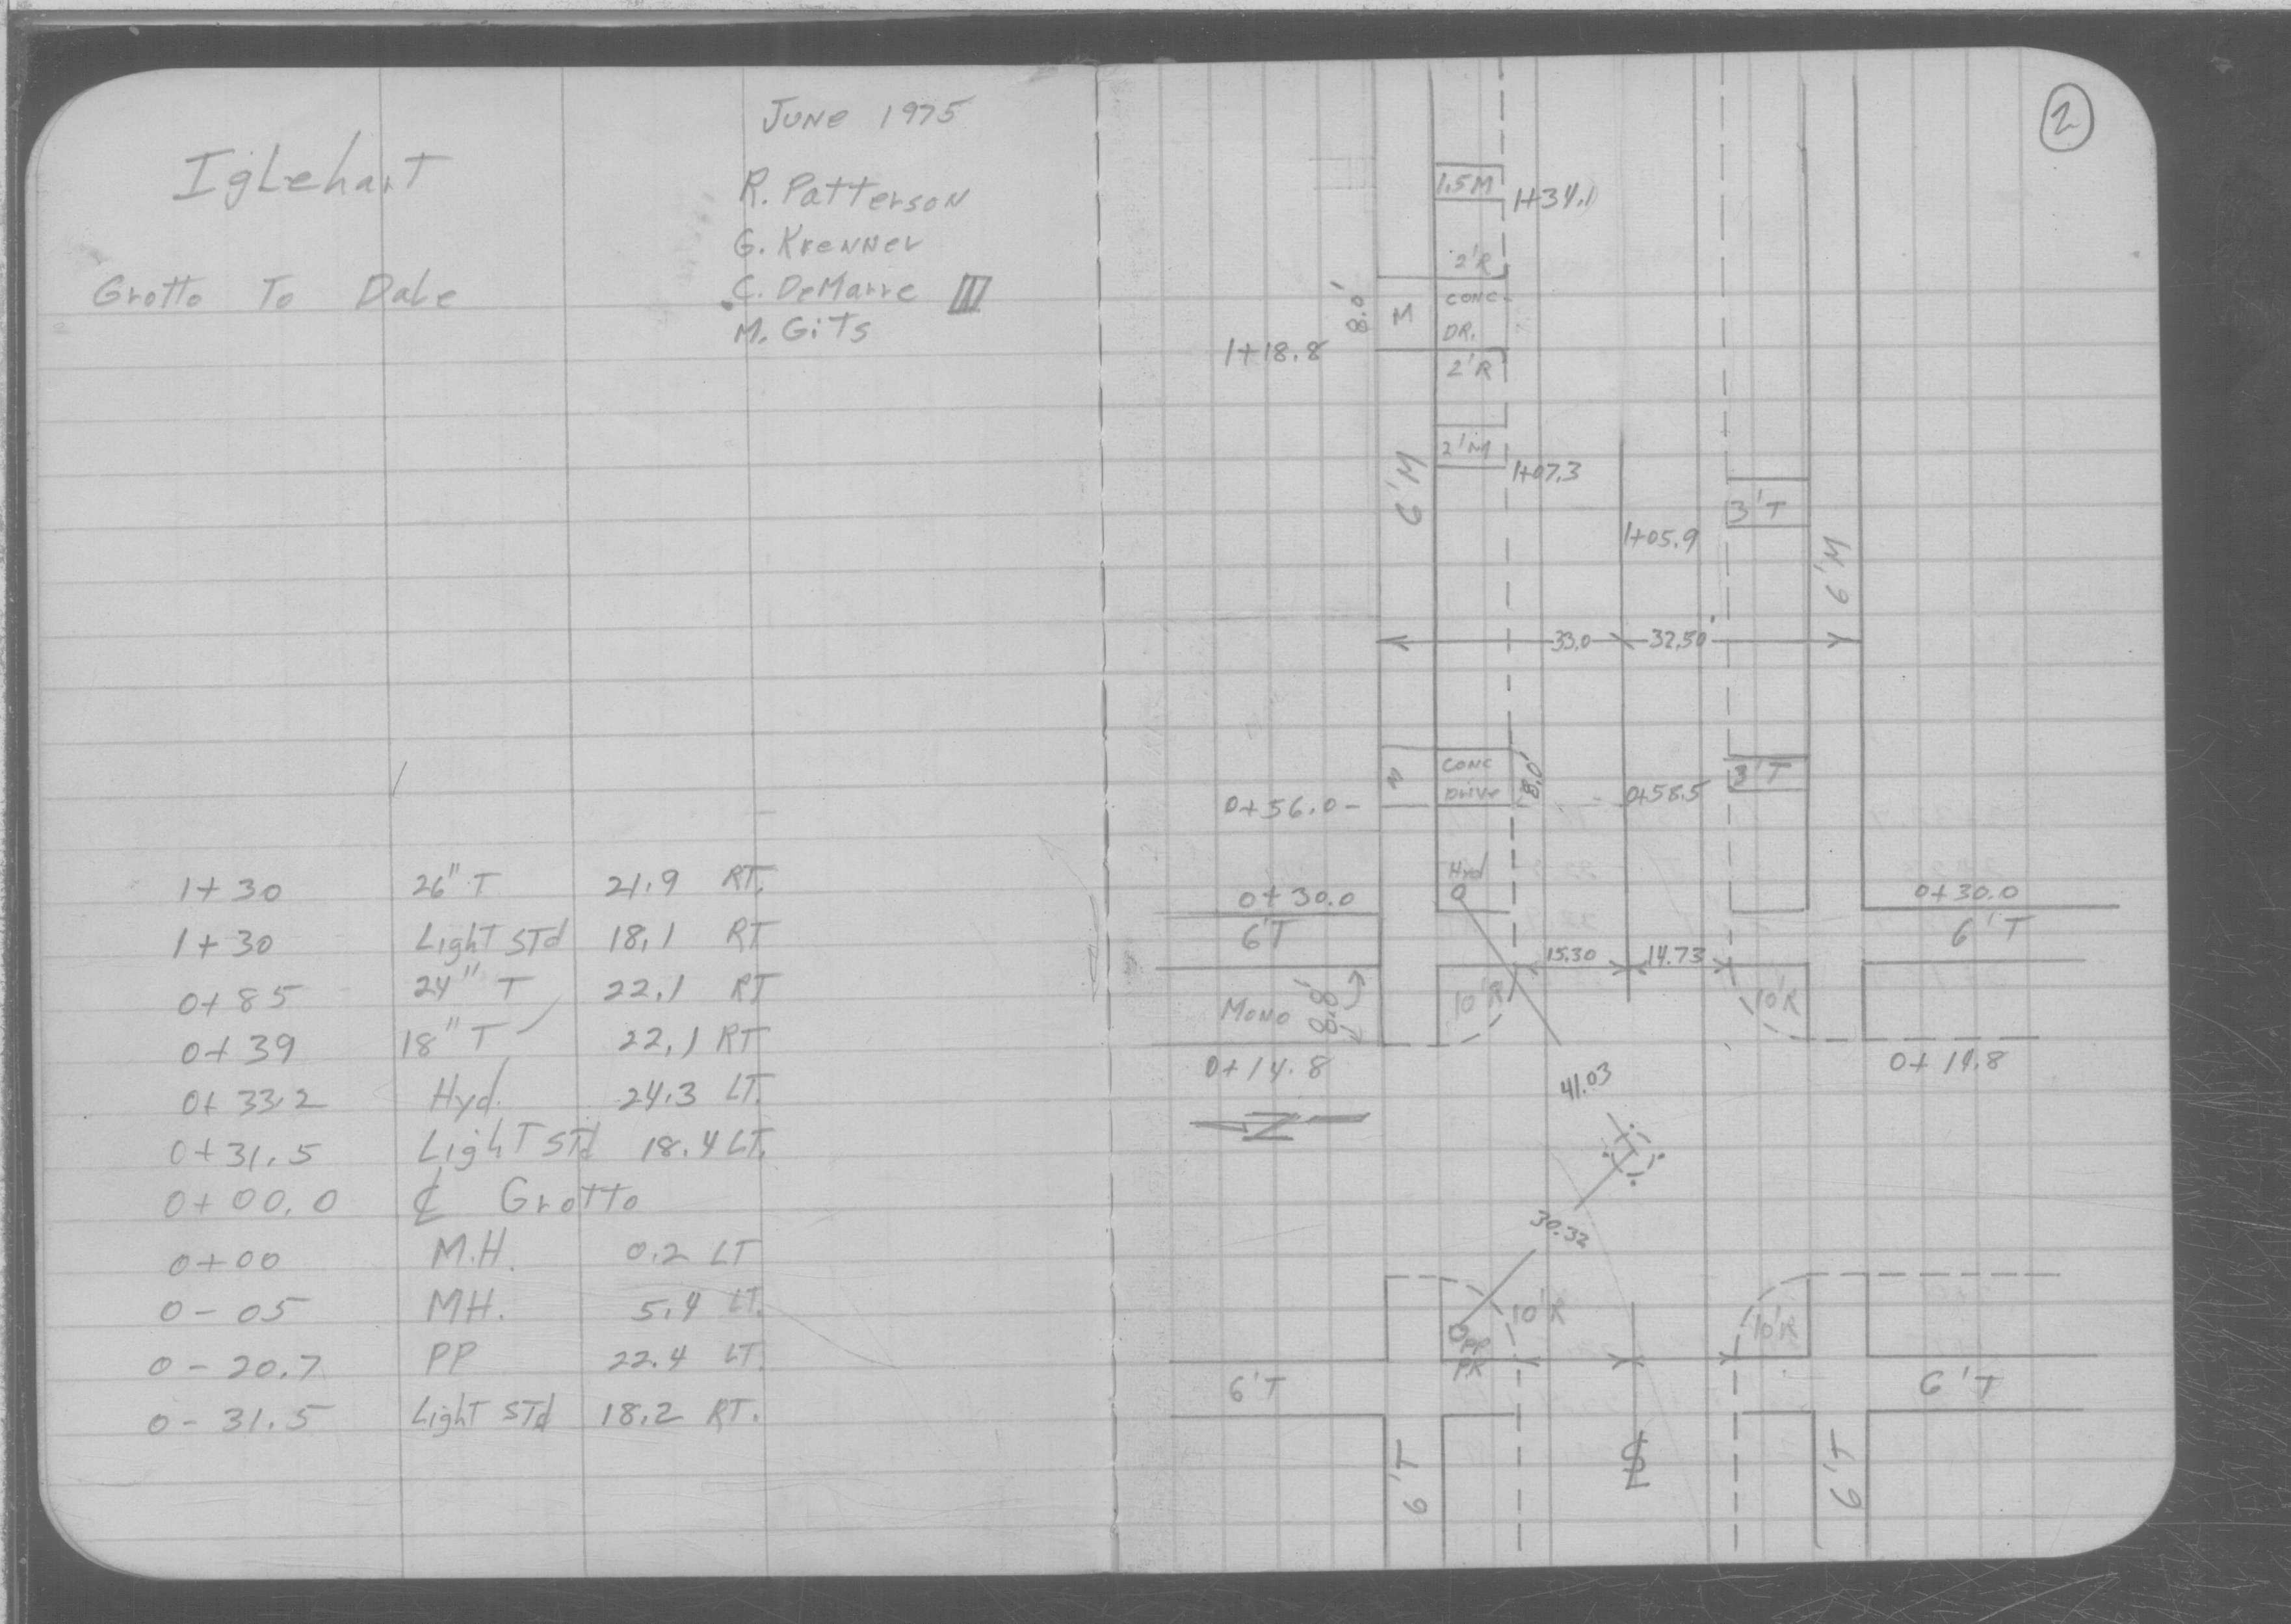 June 1975
Iglehart
R. Patterson
G. Krenner
Grotto To Dale
C. DeMarre III
M. Gits
1+30 26" T 21.9 RT.
1+30 Light STd 18.1 RT
0+85 24" T 22.1 RT
0+39 18" T 22.1 RT
0+33.2 Hyd. 24.3 LT.
0+31.5 Light STd 18.4 LT.
0+00.0 ℄ Grotto
0+00 M.H. 0.2 LT
0-05 MH. 5.4 LT.
0-20.7 PP 22.4 LT.
0-31.5 Light STd 18.2 RT.
2
1.5M 1+34.1
2'R
8.0' M CONC
DR.
1+18.8
2'R
2'M
1+07.3
6'M
3'T
1+05.9
6'M
33.0 32.50'
CONC
Drive
8.0'
3'T
0+56.0-
0+58.5
Hyd
0+30.0 0+30.0
6'T 6'T
15.30 14.73
Mono 8.8' 10'R 10'R
0+14.8 0+14.8
N
41.03
30.32
10'R 10'R
PP
PK
6'T 6'T
6'T ℄ 6'T